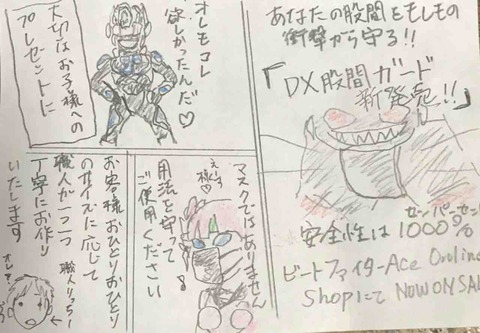 あなたの股間をもしもの
衝撃から守る!!
「DX股間ガード
新発売!!」
安全性は1000%
センパーセント
ビートファイター-Ace Online
Shopにて NOW ON SALE
オレもコレ
欲しかったんだ♡
大切なお子様への
プレゼントに
マスクではありません
用法を守って
ご使用ください
お客様おひとりおひとり
のサイズに応じて
職人が一つ一つ
丁寧にお作り
いたします
オレさ!